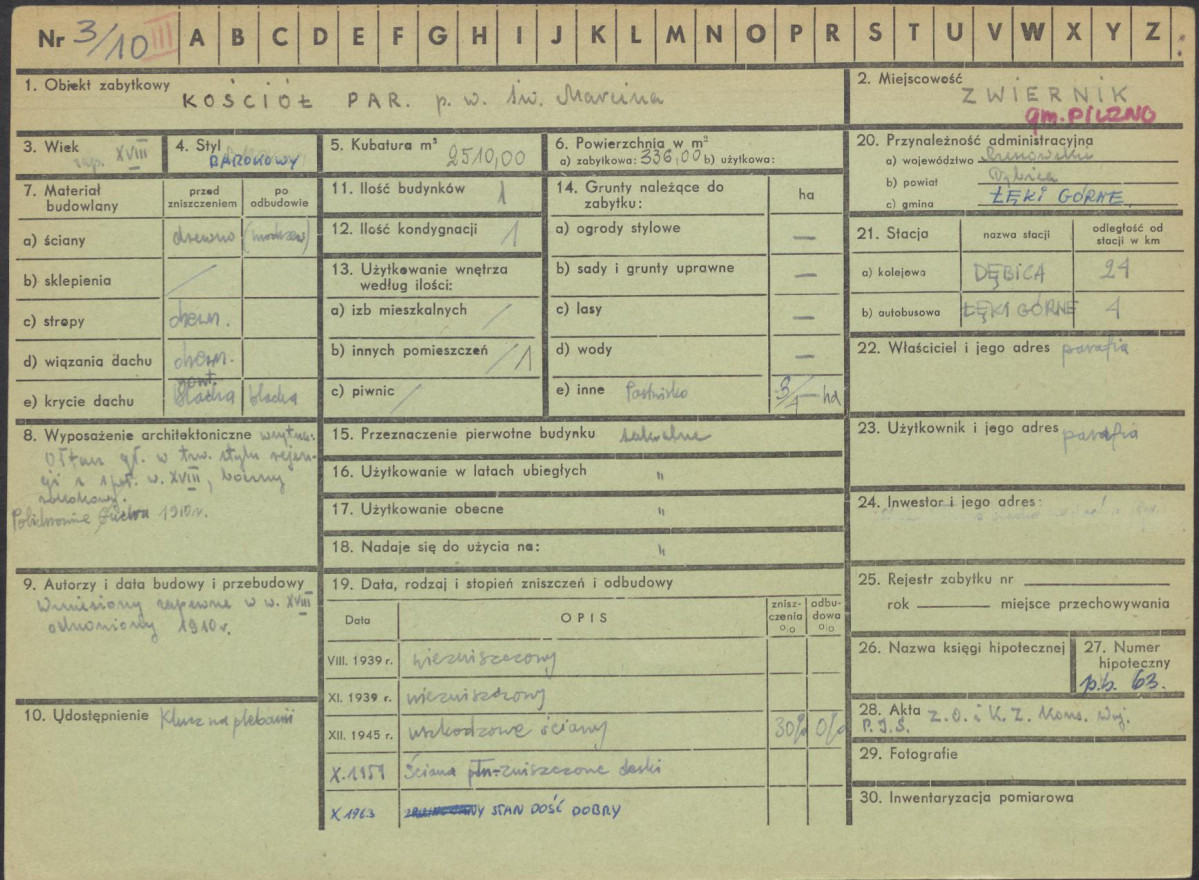 Nr 3/10 III A B C D E F G H I J K L M N O P R S T U V W X Y Z
1. Obiekt zabytkowy KOŚCIÓŁ PAR. p. w. św. Marcina
2. Miejscowość ZWIERNIK
gm. PILZNO
3. Wiek zap. XVIII
4. Styl BAROKOWY
5. Kubatura m³ 2510,00
6. Powierzchnia w m²
a) zabytkowa: 336,00 b) użytkowa:
7. Materiał budowlany
przed zniszczeniem
po odbudowie
a) ściany drzewno (modrzew)
b) sklepienia /
c) stropy drewn.
d) wiązania dachu drewn.
gont.
e) krycie dachu blacha blacha
8. Wyposażenie architektoniczne
Ołtarz gł. w tzw. stylu regen-
cji z I poł. w. XVIII, boczny
rokokowy.
Polichromia 1910 r.
9. Autorzy i data budowy i przebudowy
Wzniesiony zapewne w w. XVIII
odnowiony 1910 r.
10. Udostępnienie Klucz na plebanii
11. Ilość budynków 1
12. Ilość kondygnacji 1
13. Użytkowanie wnętrza
według ilości:
a) izb mieszkalnych /
b) innych pomieszczeń /1
c) piwnic /
14. Grunty należące do
zabytku:
ha
a) ogrody stylowe —
b) sady i grunty uprawne —
c) lasy —
d) wody —
e) inne Pastwisko 3/4 ha
15. Przeznaczenie pierwotne budynku sakralne
16. Użytkowanie w latach ubiegłych "
17. Użytkowanie obecne "
18. Nadaje się do użycia na: "
19. Data, rodzaj i stopień zniszczeń i odbudowy
Data OPIS znisz-czenia % odbu-dowa %
VIII. 1939 r. niezniszczony
XI. 1939 r. niezniszczony
XII. 1945 r. uszkodzone ściany 30% 0%
X. 1959 Ściana płn. zniszczone deski
X 1963 STAN DOŚĆ DOBRY
20. Przynależność administracyjna
a) województwo Rzeszowskie
b) powiat Dębica
c) gmina ŁĘKI GÓRNE
21. Stacja
nazwa stacji
odległość od stacji w km
a) kolejowa DĘBICA 24
b) autobusowa ŁĘKI GÓRNE 4
22. Właściciel i jego adres parafia
23. Użytkownik i jego adres parafia
24. Inwestor i jego adres:
25. Rejestr zabytku nr
rok miejsce przechowywania
26. Nazwa księgi hipotecznej
27. Numer hipoteczny
p.b. 63.
28. Akta Z. O. i K. Z. Kons. Woj.
P.I.S.
29. Fotografie
30. Inwentaryzacja pomiarowa